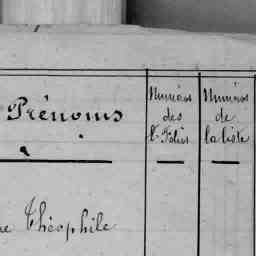 Prénoms
Numéros
des
Folios
Numéros
de
la liste
ne Théophile